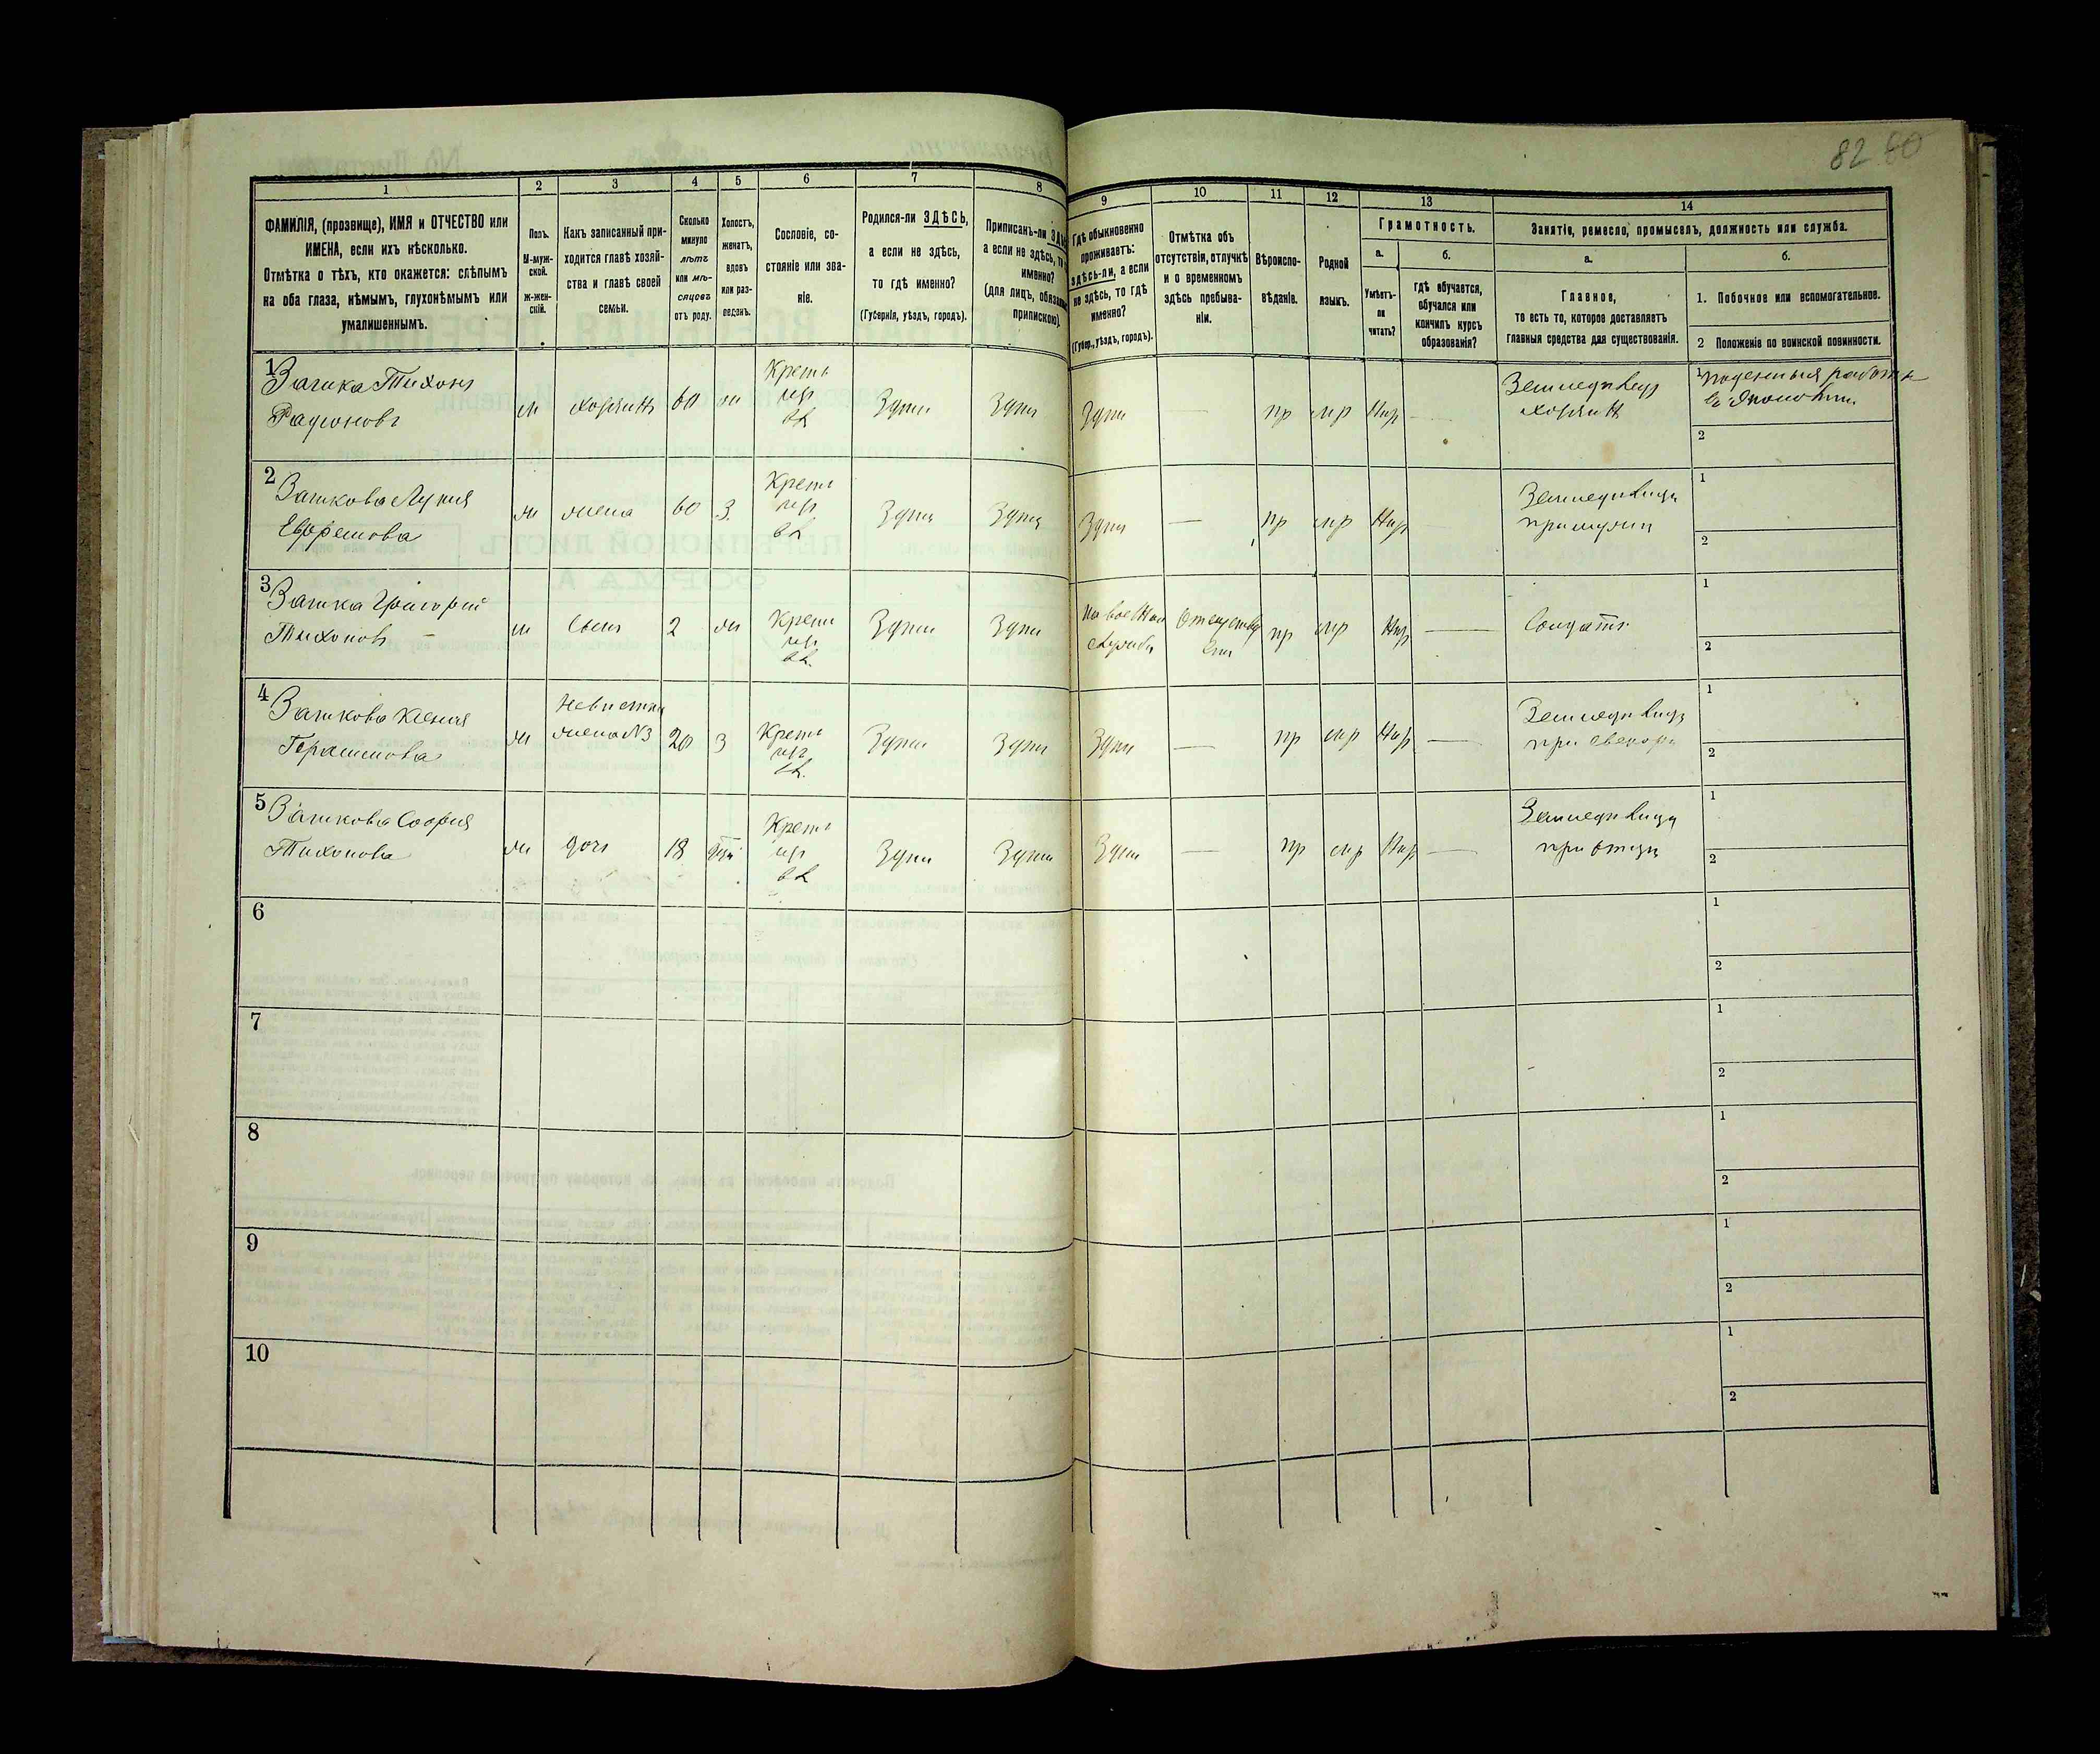 82 60
1
2
3
4
5
6
7
8
9
10
11
12
13
14
ФАМИЛІЯ, (прозвище), ИМЯ и ОТЧЕСТВО или
ИМЕНА, если ихъ нѣсколько.
Отмѣтка о тѣхъ, кто окажется: слѣпымъ
на оба глаза, нѣмымъ, глухонѣмымъ или
умалишеннымъ.
Полъ.
М-муж-
ской.
Ж-жен-
скій.
Какъ записанный при-
ходится главѣ хозяй-
ства и главѣ своей
семьи.
Сколько
минуло
лѣтъ
или мѣ-
сяцовъ
отъ роду.
Холостъ,
женатъ,
вдовъ
или раз-
веденъ.
Сословіе, со-
стояніе или зва-
ніе.
Родился-ли ЗДѢСЬ,
а если не здѣсь,
то гдѣ именно?
(Губернія, уѣздъ, городъ).
Приписанъ-ли
а если не здѣсь, то
именно?
(для лицъ,
припискою).
Гдѣ обыкновенно
проживаетъ:
здѣсь-ли, а если
не здѣсь, то гдѣ
именно?
(Губер., уѣздъ, городъ).
Отмѣтка объ
отсутствіи, отлучкѣ
и о временномъ
здѣсь пребыва-
ніи.
Вѣроиспо-
вѣданіе.
Родной
языкъ.
Грамотность.
а.
Умѣетъ-
ли
читать?
б.
гдѣ обучается,
обучался или
кончилъ курсъ
образованія?
Занятіе, ремесло, промыселъ, должность или служба.
а.
Главное,
то есть то, которое доставляетъ
главныя средства для существованія.
б.
1. Побочное или вспомогательное.
2 Положеніе по воинской повинности.
1
Зашка Тихонъ
Радионовъ
м
хозяинъ
60
ж
Крест
Здѣсь
Здѣсь
Здѣсь
—
пр
мр
Нѣр
—
Земледѣлецъ
хозяинъ
1
Поденныя работы
въ Экономіи
2
2
Зашкова Лукия
Ефремова
ж
жена
60
З
Крест
Здѣсь
Здѣсь
Здѣсь
—
пр
мр
Нѣр
Земледѣлица
при мужи
1
2
3
Зашка Григорий
Тихоновъ
м
Сынъ
2
ж
Крест
Здѣсь
Здѣсь
На военной
службѣ
пр
мр
Нѣр
—
Солдатъ
1
2
4
Зашкова Ксения
Герасимова
ж
Невѣстка
жена №3
20
З
Крест
Здѣсь
Здѣсь
Здѣсь
—
пр
мр
Нѣр
—
Земледѣлица
при свекорѣ
1
2
5
Зашкова София
Тихонова
ж
дочь
18
Крест
Здѣсь
Здѣсь
Здѣсь
—
пр
мр
Нѣр
—
Земледѣлица
при отцѣ
1
2
6
1
2
7
1
2
8
1
2
9
1
2
10
1
2